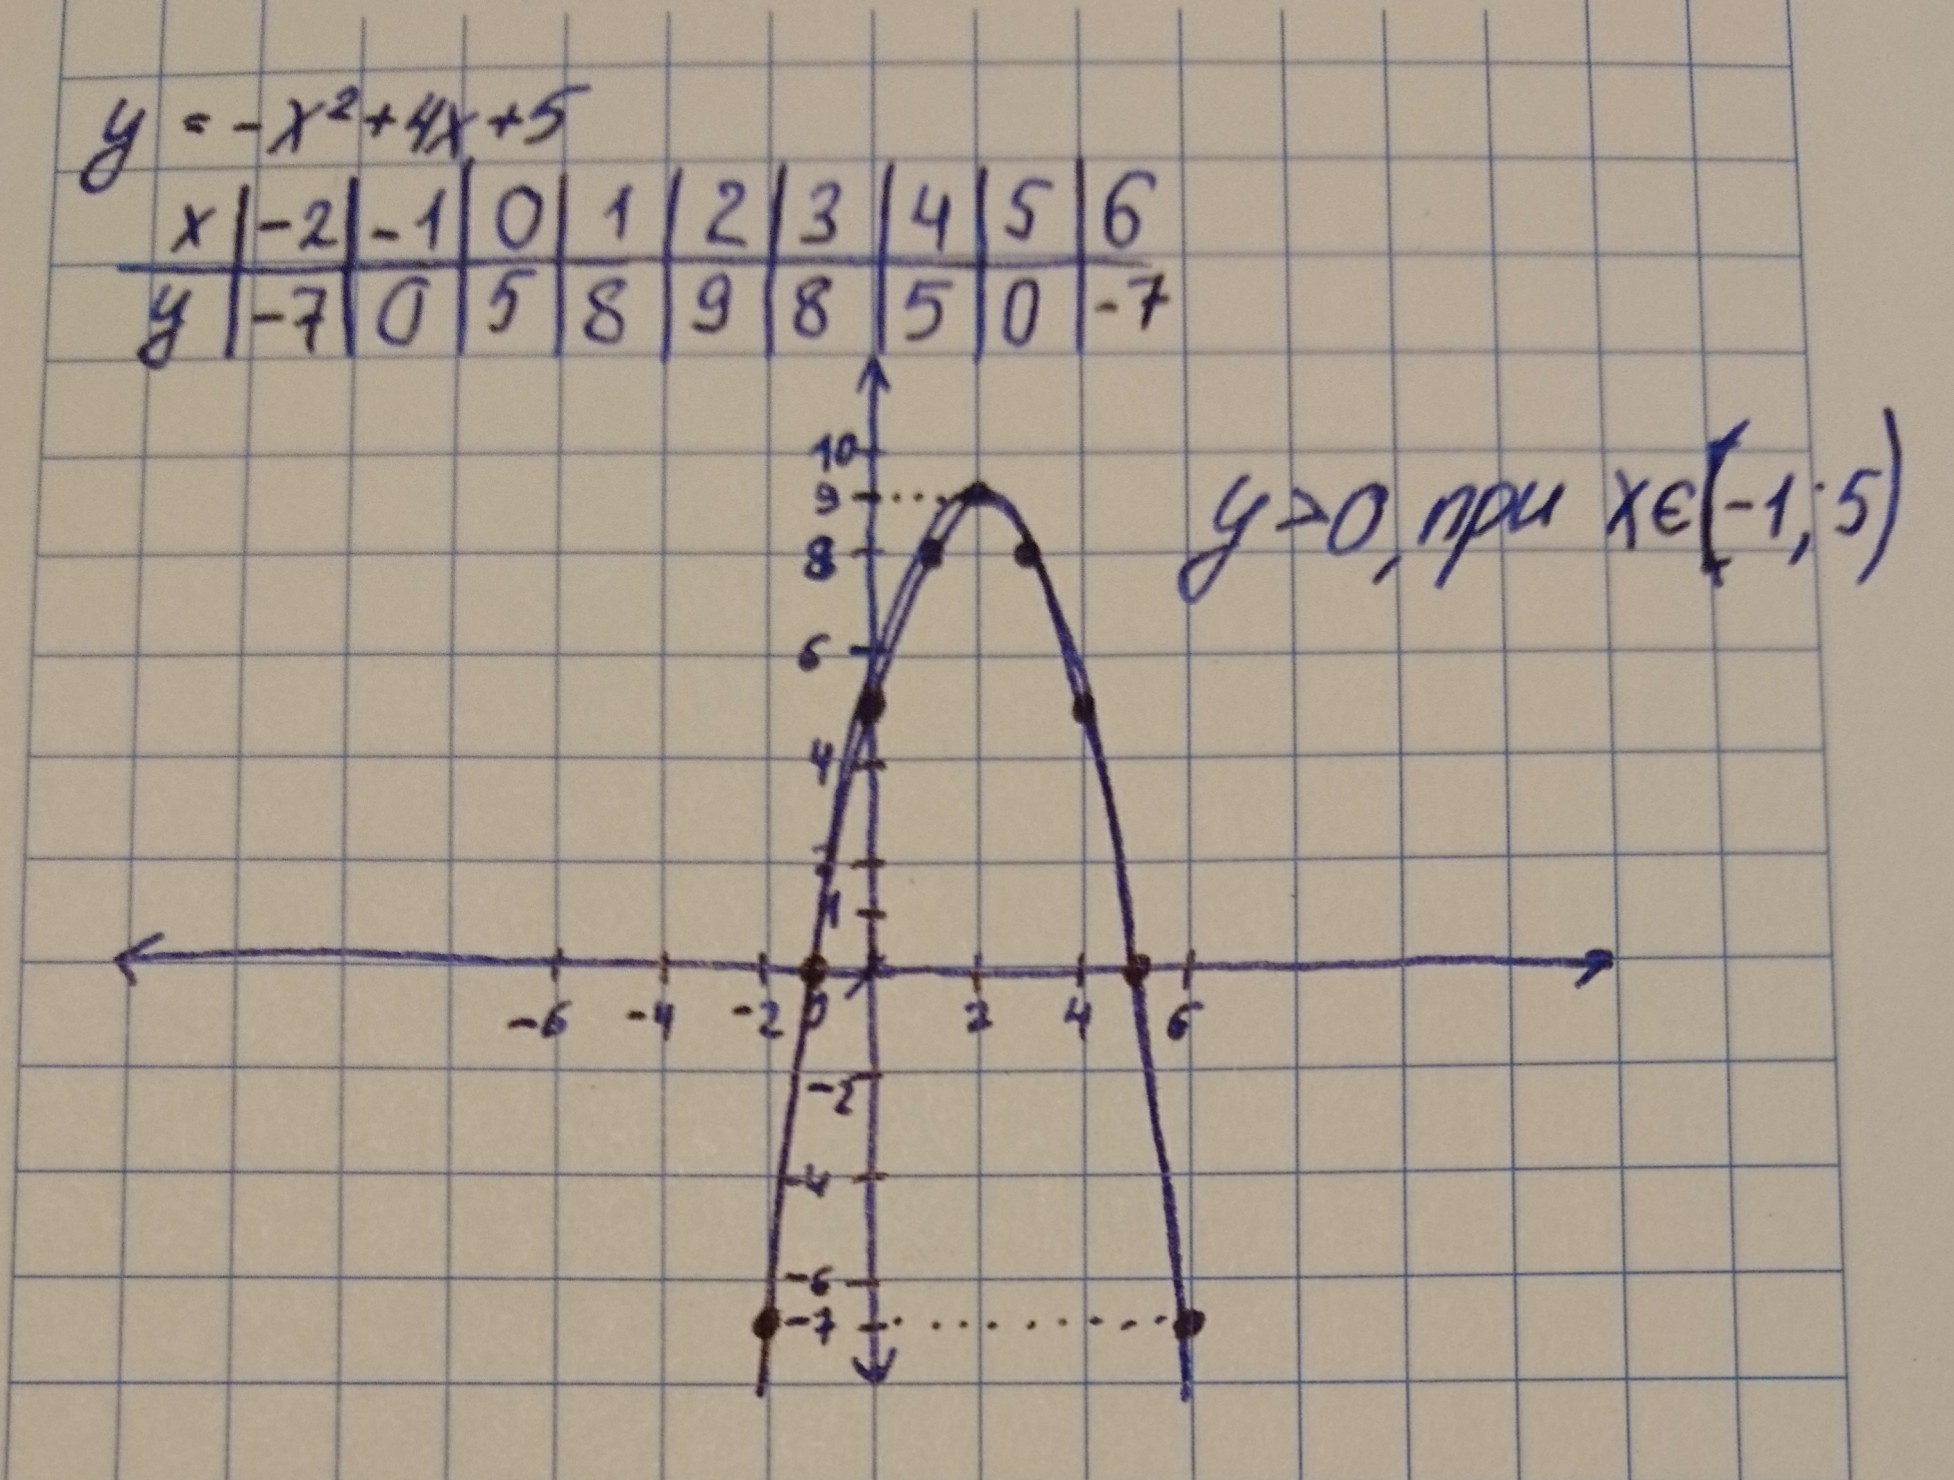 y = -x²+4x+5
x | -2 | -1 | 0 | 1 | 2 | 3 | 4 | 5 | 6
y | -7 | 0 | 5 | 8 | 9 | 8 | 5 | 0 | -7
10
9
y>0, при x∈(-1; 5)
8
6
4
2
1
-6 -4 -2 0 2 4 6
-2
-4
-6
-7